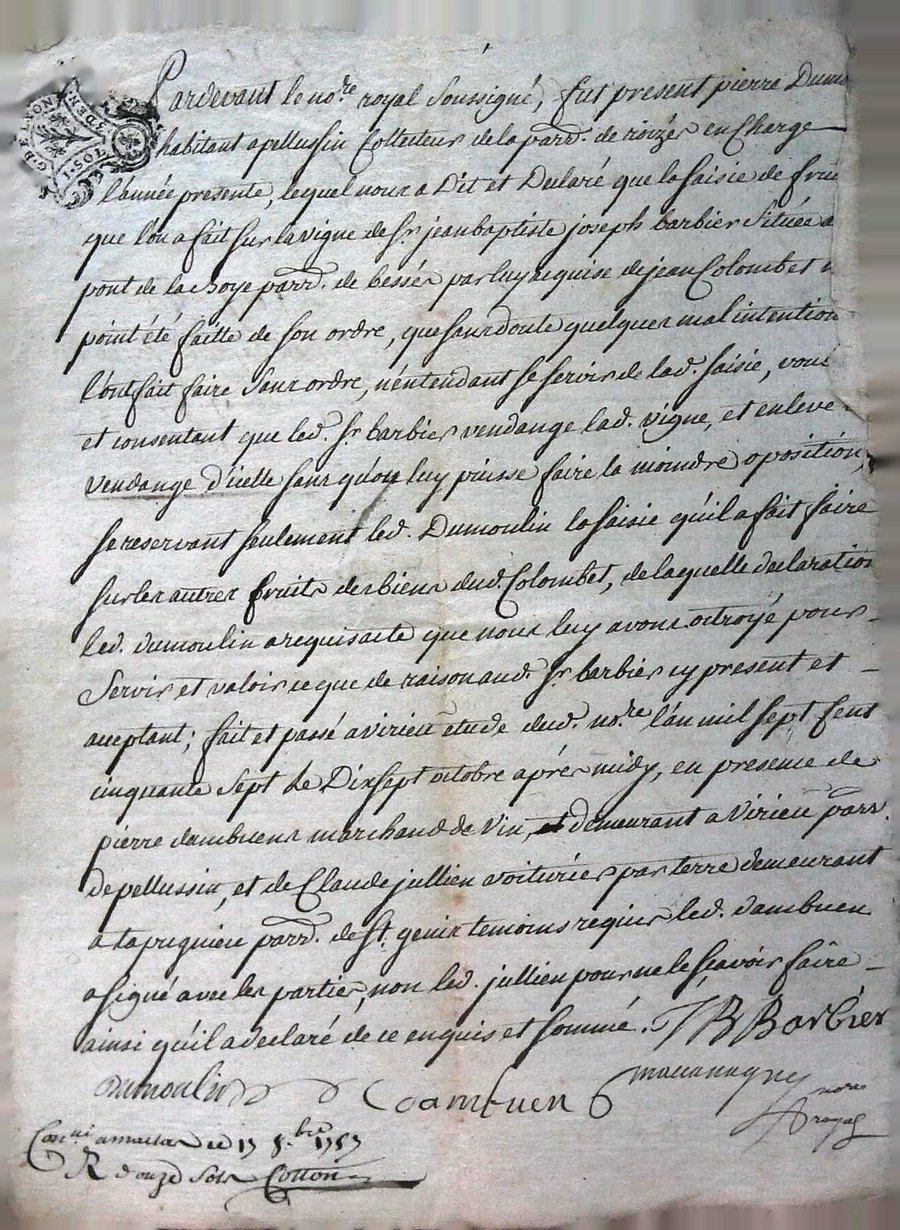 G. DE LYON
Pardevant le no.re royal soussigné, fut present pierre Dumo
habitant a pellussin Collecteur de la parr.e de roizés en Charge
l'année presente, lequel nous a Dit et Declaré que la saisie de frui
que l'on a fait sur la vigne de Sr. jean baptiste joseph barbier Située a
pont de la roye parr.e de bessés par luy acquise de jean Colombet n
point été faitte de son ordre, que sans doute quelques mal intention
l'ont fait faire sans ordre, n'entendant se servir de lad. saisie, voul
et consentant que led. Sr. barbier vendange lad. vigne, et enleve
vendange d'icelle sans qu'on luy puisse faire la moindre oposition,
se reservant seulement led. Dumoulin la saisie qu'il a fait faire
sur les autres fruits des biens dud. Colombet, de laquelle declaration
led. dumoulin a requis acte que nous luy avons octroyé pour
Servir et valoir ce que de raison aud. Sr. barbier cy present et
aceptant; fait et passé a virieu etude dud. no.re l'an mil sept Cent
cinquante sept le Dix sept octobre aprés midy, en presence de
pierre dambuent marchand de vin, demeurant a Virieu parr.
de pellussin, et de Claude jullien voiturier par terre demeurant
a la priguieu parr.e de St. genix temoins requis led. dambuen
a signé avec les parties, non led. jullien pour ne le sçavoir faire
ainsi qu'il a declaré de ce enquis et sommé. JB Barbier
Dumoulin Dambuen
nore
royal
Con.lé a maclas le 17 8.bre 1757
R douze sols Cotton